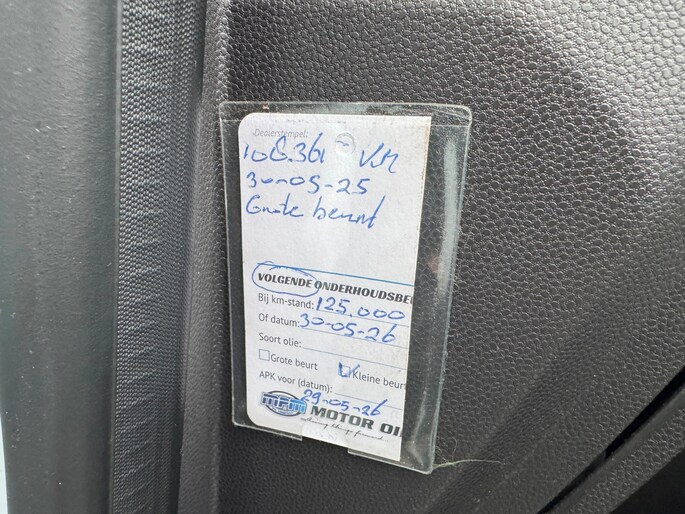 Dealerstempel:
108.361 KM
30-05-25
Grote beurt
VOLGENDE ONDERHOUDSBEU
Bij km-stand: 125.000
Of datum: 30-05-26
Soort olie:
Grote beurt Kleine beurt
APK voor (datum):
29-05-26
MPM MOTOR OIL